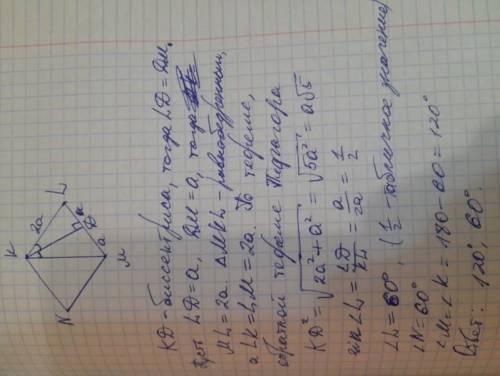 KD - биссектриса, тогда LD = DM.
Пусть LD = a, DM = a, тогда
ML = 2a. △MKL - равнобедренный,
а LK = LM = 2a. По теореме,
обратной теореме Пифагора
KD² = √2a² + a² = √5a² = a√5
sin∠L = LD/KL = a/2a = 1/2
∠L = 60°, (1/2 - табличное значение)
∠N = 60°
∠M = ∠K = 180 - 60 = 120°
Ответ: 120°, 60°.
K
L
M
N
D
2a
a
a